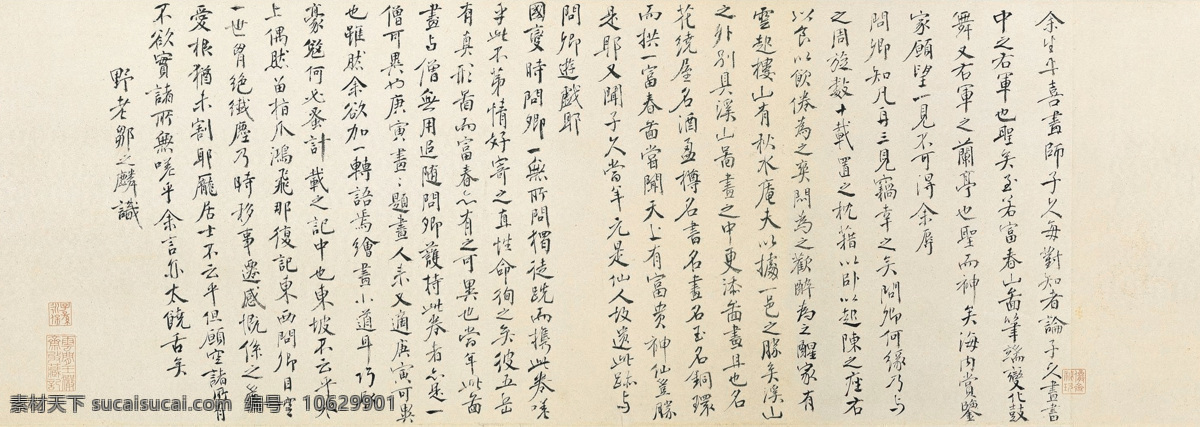 余生平喜畫師子久每對知者論子久畫書
中之右軍也聖矣至若富春山圖筆端變化鼓
舞又右軍之蘭亭也聖而神矣海內賞鑒
家願望一見不可得余辱
問卿知凡再三見竊幸之矣問卿何緣乃與
之周旋數十載置之枕藉以臥以起陳之座右
以食以飲倦為之爽悶為之歡醉為之醒家有
雲起樓山有秋水庵夫以據一邑之勝矣溪山
之外別具溪山圖畫之中更添圖畫且也名
花繞屋名酒盈樽名書名畫名玉名銅環
而拱一富春圖嘗聞天上有富貴神仙豈勝
是耶又聞子久當年元是仙人故遺此跡與
問卿遊戲耶
國變時問卿一無所問獨徒跣而攜此卷嗟
乎此不第情好寄之直性命徇之矣彼五岳
有真形圖而富春亦有之可異也當年此圖
畫與僧無用追隨問卿護持此卷者亦是一
僧可異也庚寅畫題畫人來又適庚寅可異
也雖然余欲加一轉語焉繪畫小道耳巧取
豪奪何必蚤計載之記中也東坡不云乎冰
上偶然留指爪鴻飛那復記東西問卿目空
一世胷絕纖塵乃時移事遷感慨係之豈
愛根猶未割耶龐居士不云乎但願空諸所有
不欲實諸所無嗟乎余言亦太饒舌矣
野老鄒之麟識
素材天下 sucaisucai.com 编号：10629901